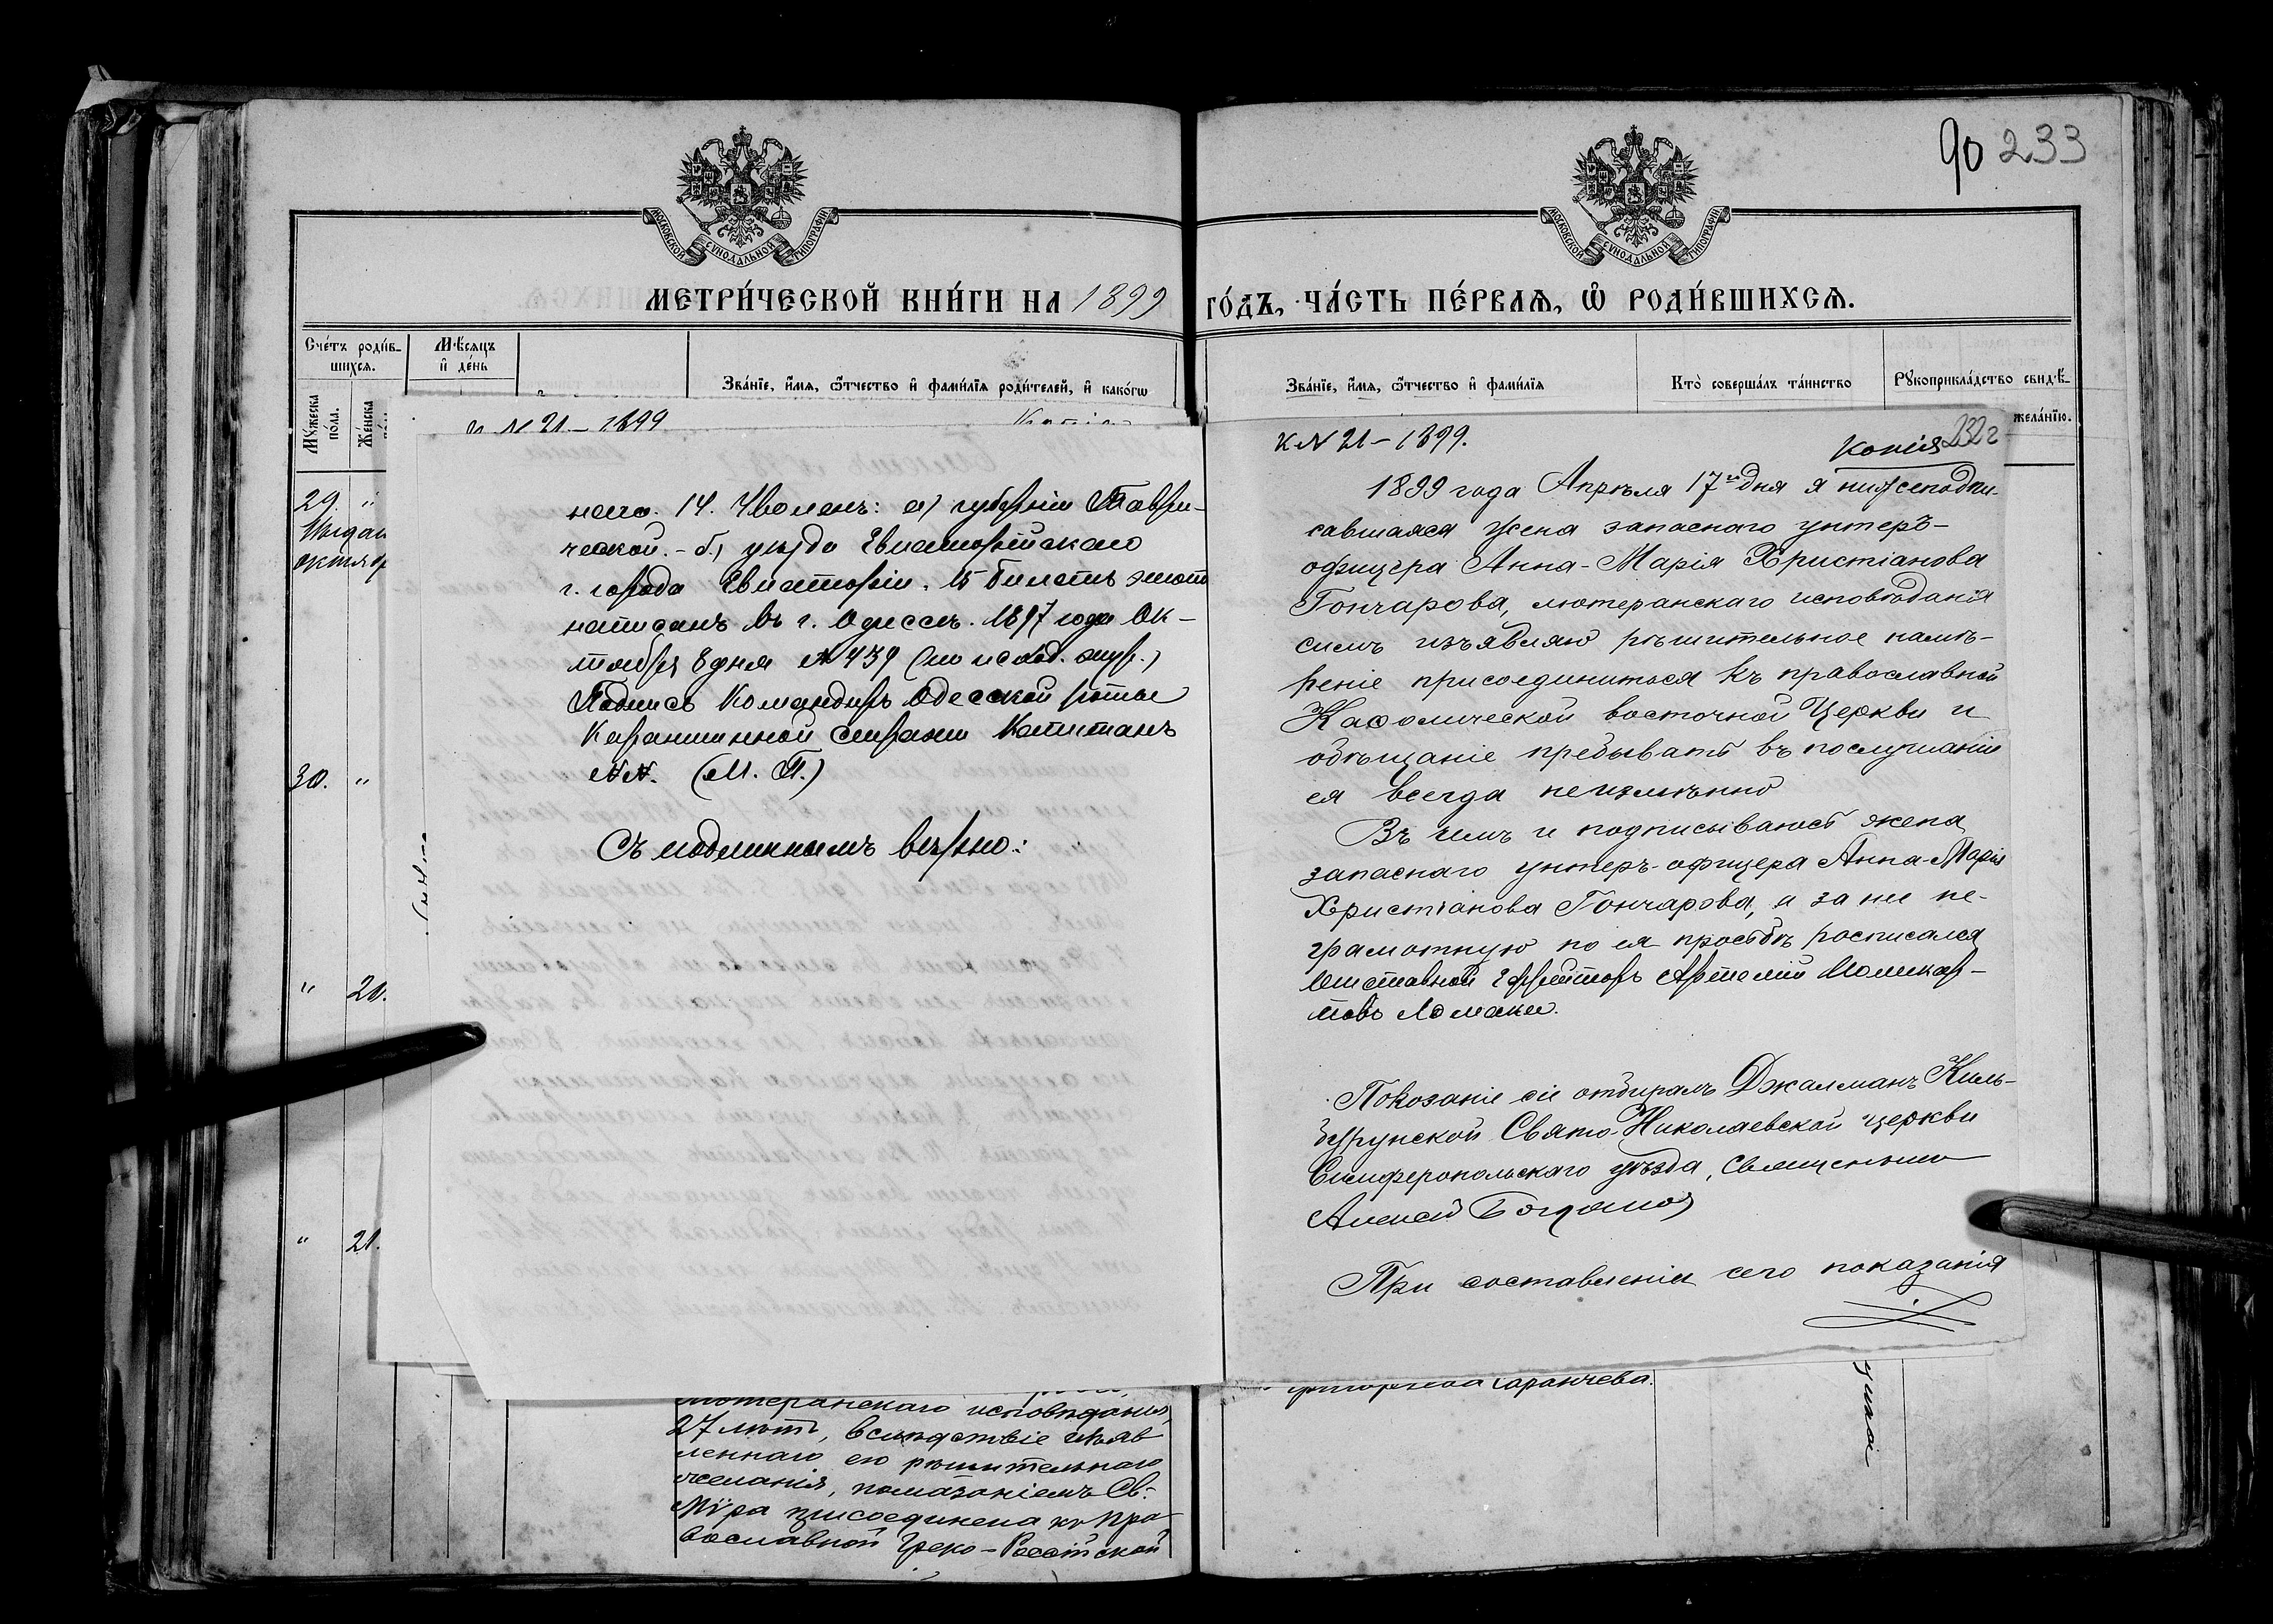 90 233
МОСКОВСКОЙ СУНОДАЛЬНОЙ ТИПОГРАФІИ
МОСКОВСКОЙ СУНОДАЛЬНОЙ ТИПОГРАФІИ
МЕТРИ́ЧЕСКОЙ КНИ́ГИ НА 1899 ГО́ДЪ, ЧА́СТЬ ПЕ́РВАѦ, Ѡ҆ РОДИ́ВШИХСѦ.
Сче́тъ роди́в-
шихсѧ.
Мѣ́сѧцъ
и҆ де́нь
Зва́нїе, и҆́мѧ, ѻ҆́тчество и҆ фами́лїѧ роди́телей, и҆ како́гѡ
Зва́нїе, и҆́мѧ, ѻ҆́тчество и҆ фами́лїѧ
Кто̀ соверша́лъ та́инство
Рꙋкоприкла́дство свидѣ́-
жела́нїю.
Мꙋ́жеска
по́ла.
Же́нска
29. "
Выдан
октяб
30. "
" 20.
" 21.
к N 21 – 1899
Копія
наго. 14. Уволенъ: а) губерніи Таври-
ческой. – б) уѣзда Евпаторійскаго
г. города Евпаторіи. 15 Билетъ этотъ
написанъ въ г. Одессѣ. 1897 года Ок-
тября 8 дня N 439
Подписъ Командиръ Одесской роты
Карантинной стражи Капитанъ
NN. (М. П.)
Съ подлиннымъ вѣрно:
к N 21 – 1899.
Копія 232 г
1899 года Апрѣля 17го дня я нижеподпи-
савшаяся жена запаснаго унтеръ-
офицера Анна-Марія Христіанова
Гончарова, лютеранскаго исповѣданія
симъ изъявляю рѣшительное намѣ-
реніе присоединиться къ православной
Каѳолической восточной Церкви и
обѣщаніе пребывать въ послушаніи
ея всегда неизмѣнно
Въ чемъ и подписываюсь жена
запаснаго унтеръ-офицера Анна-Марія
Христіанова Гончарова, а за нее не-
грамотную по ея просьбѣ росписался
отставной Ефрейторъ Артемій Поликар-
повъ Ломакин.
Показаніе сіе отбиралъ Джалманъ Киль-
бурунской Свято-Николаевской церкви
Симферопольскаго уѣзда, Священникъ
Алексій
При составленіи сего показанія
лютеранскаго исповѣданія,
27 лѣтъ, вслѣдствіе изъяв
леннаго ею рѣшительнаго
желанія, помазаніемъ Св.
Мѵра присоединена къ Пра-
вославной Греко-Россійской
Гончарова.